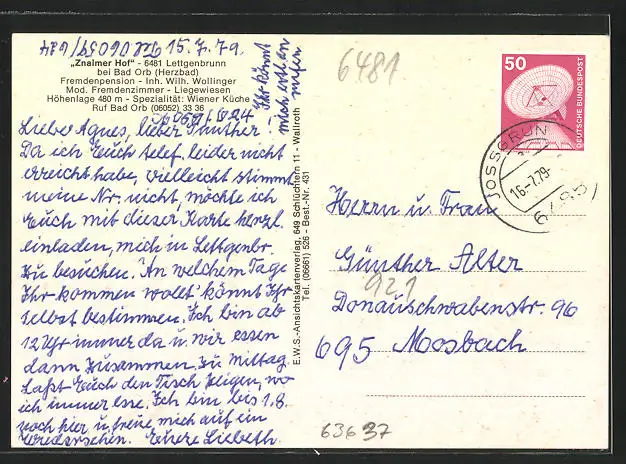 06057/624 15.7.79.
„Znaimer Hof" - 6481 Lettgenbrunn
bei Bad Orb (Herzbad)
Fremdenpension - Inh. Wilh. Wollinger
Mod. Fremdenzimmer - Liegewiesen
Höhenlage 480 m - Spezialität: Wiener Küche
Ruf Bad Orb (06052) 33 36
06057/624
Ihr könnt
mich
Liebe Agnes, lieber Günther!
Da ich Euch telef. leider nicht
erreicht habe, vielleicht stimmt
meine Nr. nicht, möchte ich
Euch mit dieser Karte herzl.
einladen, mich in Lettgenbr.
zu besuchen. An welchem Tage
Ihr kommen wollt könnt Ihr
selbst bestimmen. Ich bin ab
12 Uhr immer da u. wir essen
dann zusammen zu Mittag.
Laßt Euch den Tisch zeigen, wo
ich immer esse. Ich bin bis 1.8.
noch hier u. freue mich auf ein
Wiedersehen. Euere Liebeth.
E.W.S.-Ansichtskartenverlag, 649 Schlüchtern 11 - Wallroth
Tel. (06661) 526 - Best.-Nr. 431
6481
50
DEUTSCHE BUNDESPOST
JOSSGRUN
16.-7.79-
6485
Herrn u. Frau
Günther Alter
921
Donauschwabenstr. 96
695 Mosbach
63637